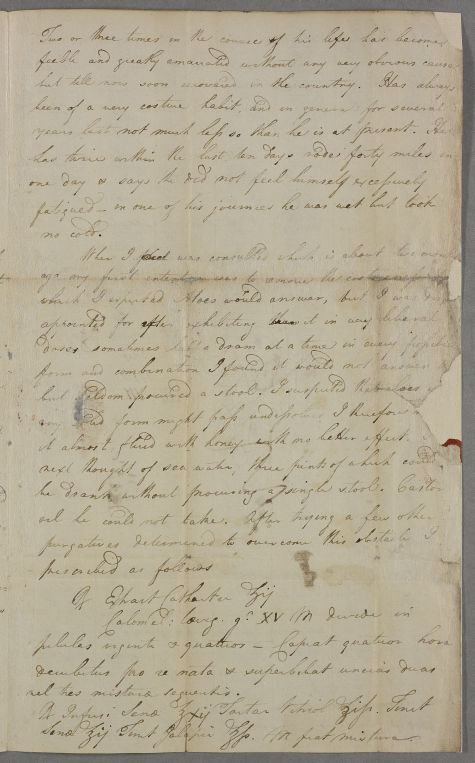 Two or three times in the course of his life has become
feeble and greatly emaciated without any very obvious cause
but till now soon recovered in the country. Has always
been of a very costive habit, and in general for several
years last not much less so than he is at present. He
has twice within the last ten days rode forty miles in
one day & says he did not feel himself excessively
fatigued – in one of his journies he was wet but took
no cold.
When I was consulted which is about two
ago my first intention was to remove the
which I expected Aloes would answer, but I was
appointed for after exhibiting it in very liberal
doses sometimes half a dram at a time in every
form and combination I found it would not answer
but seldom procured a stool. I suspected the aloes
any form might pass undissolved I therefore
it almost fluid with honey with no better effect.
next thought of sea water, three pints of which could
be drank without procuring a single stool. Castor
oil he could not take. After trying a few other
purgatives determined to overcome this obstacle I
prescribed as follows
℞ Extract Cathartic ʒij
Calomel: gr XV M divide in
pilulas viginti & quattuor – Capiat quatuor hora
decubitus pro re nata & superbibat uncias duas
vel tres misturæ sequentis.
℞ Infusi Senæ ℥xij Tartar Vitriol ʒiſs. Tinct
Senæ ʒij Tinct Jalapii ℥ſs. M fiat mistura.